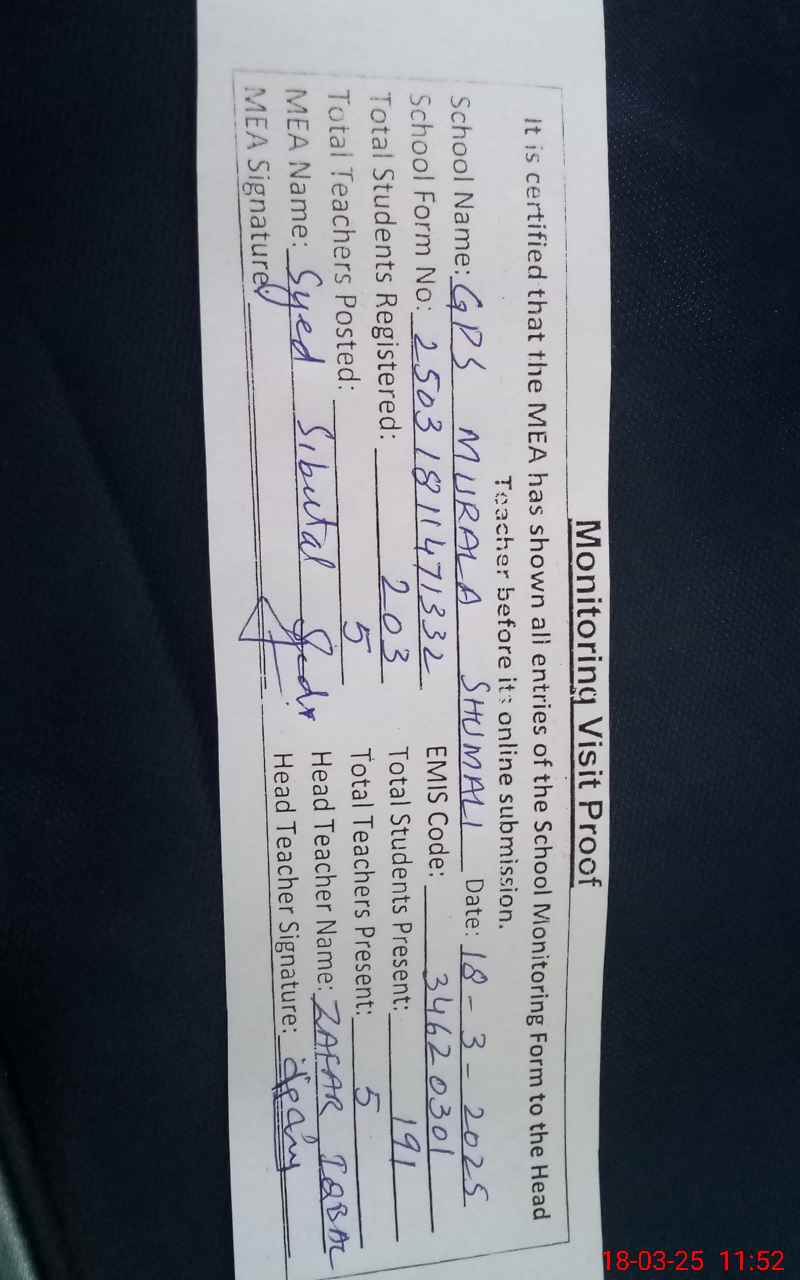 Monitoring Visit Proof
It is certified that the MEA has shown all entries of the School Monitoring Form to the Head
Teacher before its online submission.
School Name: GPS MURALA SHUMALI Date: 18-3-2025
School Form No: 25031811471332 EMIS Code: 34620301
Total Students Registered: 203 Total Students Present: 191
Total Teachers Posted: 5 Total Teachers Present: 5
MEA Name: Syed Sibutal Head Teacher Name: ZAFAR IQBAL
MEA Signature: Head Teacher Signature:
18-03-25 11:52